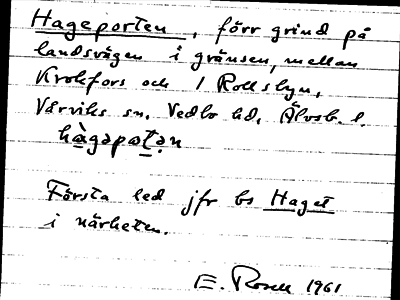 Hageporten, förr grind på
landsvägen i gränsen, mellan
Krokfors och / Rollsbyn,
Värviks sn. Vedbo hd, Älvsb. l.
Första led jfr bs Haget
i närheten.
E. Rosell 1961